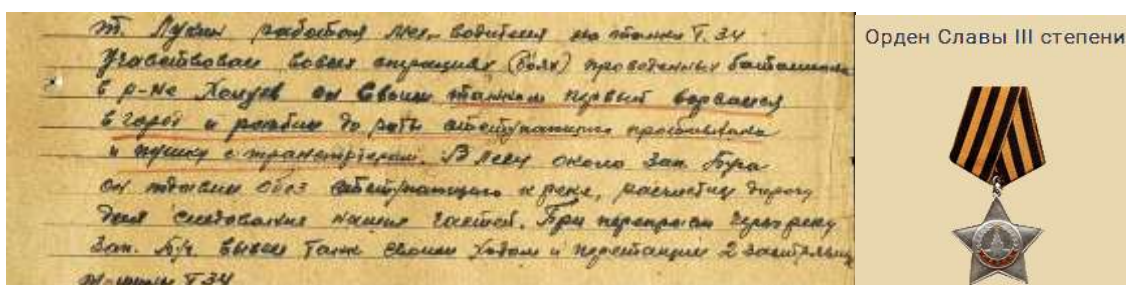 т. Лукин работая мех. водителем на танке Т.34
Участвовал во всех операциях (боях) проводенных батальоном
в р-не он своим танком первый ворвался
в город и разбил до роты отступающего противника
и пушку с транспортером. В лесу около Зап. Буга
он обоз отступающего к реке, расчистил дорогу
для следования наших частей. При переправе через реку
Зап. Буг вывел танк своим ходом и 2
машины Т 34
Орден Славы III степени